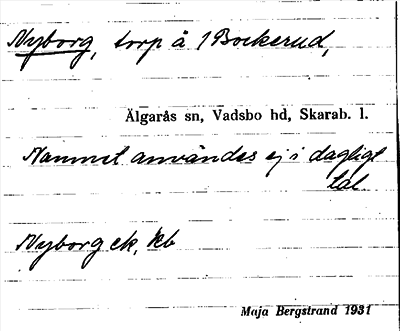 Nyborg, torp å 1 Bockerud,
Älgarås sn, Vadsbo hd, Skarab. l.
Namnet användes ej i dagligt
tal.
Nyborg ek, kb
Maja Bergstrand 1931